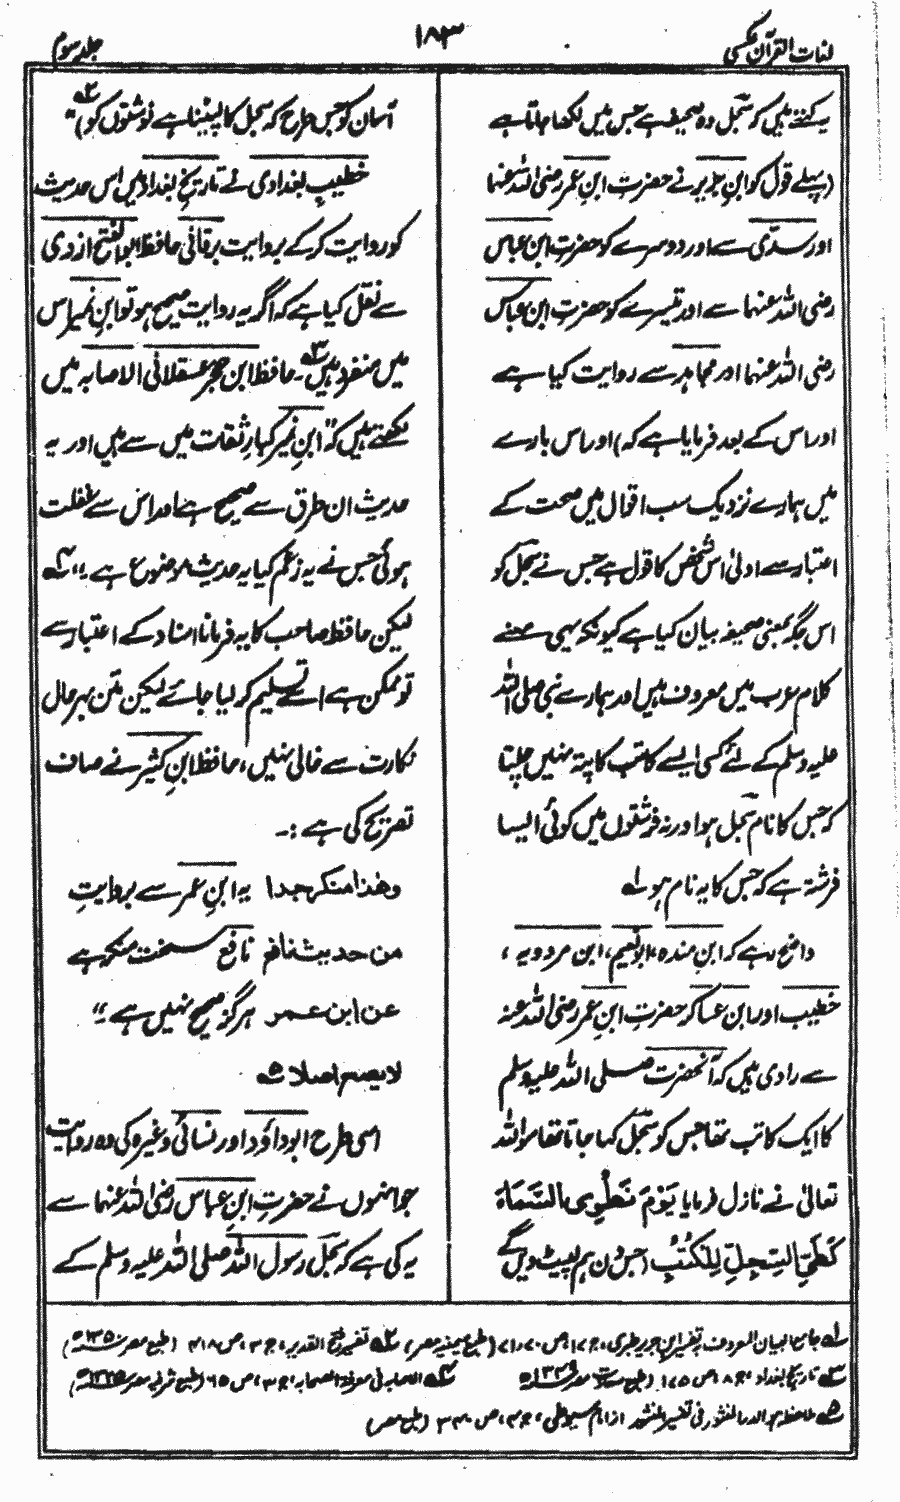 لغات القرآن عکسی
۱۸۳
جلد سوم
یہ کہتے ہیں کہ سِجِل وہ صحیفہ ہے جس میں لکھا جاتا ہے
(پہلے قول کو ابنِ جریر نے حضرتِ ابنِ عمر رضی اللہ عنہما
اور سدّی سے اور دوسرے کو حضرت ابنِ عباس
رضی اللہ عنہما سے اور تیسرے کو حضرت ابن عباس
رضی اللہ عنہما اور مجاہد سے روایت کیا ہے
اور اس کے بعد فرمایا ہے کہ) اور اس بارے
میں ہمارے نزدیک سب اقوال میں صحت کے
اعتبار سے اولیٰ اس شخص کا قول ہے جس نے سِجِل کو
اس جگہ بمعنی صحیفہ بیان کیا ہے کیونکہ یہی معنے
کلامِ عرب میں معروف ہیں اور ہمارے نبی صلی اللہ
علیہ وسلم کے لئے کسی ایسے کاتب کا پتہ نہیں چلتا
کہ جس کا نام سِجِل ہو اور نہ فرشتوں میں کوئی ایسا
فرشتہ ہے کہ جس کا یہ نام ہو لہ
واضح رہے کہ ابنِ مندہ، ابو نُعیم، ابن مردویہ،
خطیب اور ابن عساکر حضرتِ ابنِ عمر رضی اللہ عنہ
سے راوی ہیں کہ آنحضرت صلی اللہ علیہ وسلم
کا ایک کاتب تھا جس کو سجل کہا جاتا تھا سو اللہ
تعالیٰ نے نازل فرمایا یَوْمَ نَطْوِی السَّمَاءَ
کَطَیِّ السِّجِلِّ لِلْکُتُبِ (جس دن ہم لپیٹ دیں گے
آسمان کو جس طرح کہ سجل کا لپیٹنا ہے نوشتوں کو) ۲؎
خطیب بغدادی نے تاریخ بغداد میں اس حدیث
کو روایت کرکے بروایت برقانی حافظ ابو الفتح ازدی
سے نقل کیا ہے کہ اگر یہ روایت صحیح ہو تو ابنِ نُمیر اس
میں منفرد ہیں ۳؎۔ حافظ ابن حجر عسقلانی الاصابہ میں
لکھتے ہیں کہ "ابنِ نُمیر کبارِ ثقات میں سے ہیں اور یہ
حدیث ان طرق سے صحیح ہے اور اس سے غفلت
ہوئی جس نے یہ زعم کیا یہ حدیث موضوع ہے۔" ۴؎
لیکن حافظ صاحب کا یہ فرمانا اسناد کے اعتبار سے
تو ممکن ہے اسے تسلیم کر لیا جائے لیکن متن بہرحال
نکارت سے خالی نہیں، حافظ ابنِ کثیر نے صاف
تصریح کی ہے:۔
وهٰذا منكر جدا یہ ابنِ عمر سے بروایتِ
من حدیث نافع نافع سخت منکر ہے
عن ابن عمر ہرگز صحیح نہیں ہے۔"
لا یصح اصلا ۵؎
اسی طرح ابو داؤد اور نسائی وغیرہ کی وہ روایت
جو انھوں نے حضرتِ ابنِ عباس رضی اللہ عنہما سے
یہ کی ہے کہ سجل رسول اللہ صلی اللہ علیہ وسلم کے
لہ جامع البیان المعروف بہ تفسیر ابن جریر طبری، ج ۱۷، ص ۷۰ (طبع میمنیہ مصر) ۲؎ تفسیر فتح القدیر، ج ۳، ص ۴۱۸ (طبع مصر
۳؎ تاریخ بغداد، ج ۸، ص ۱۷۵ (طبع مصر ۴؎ الاصابہ فی معرفۃ الصحابہ، ج ۳، ص ۶۵ (طبع مصر
۵؎ ملاحظہ ہو الدر المنثور فی تفسیر المنثور از امام سیوطی، ج ۴، ص ۳۴۰ (طبع مصر)